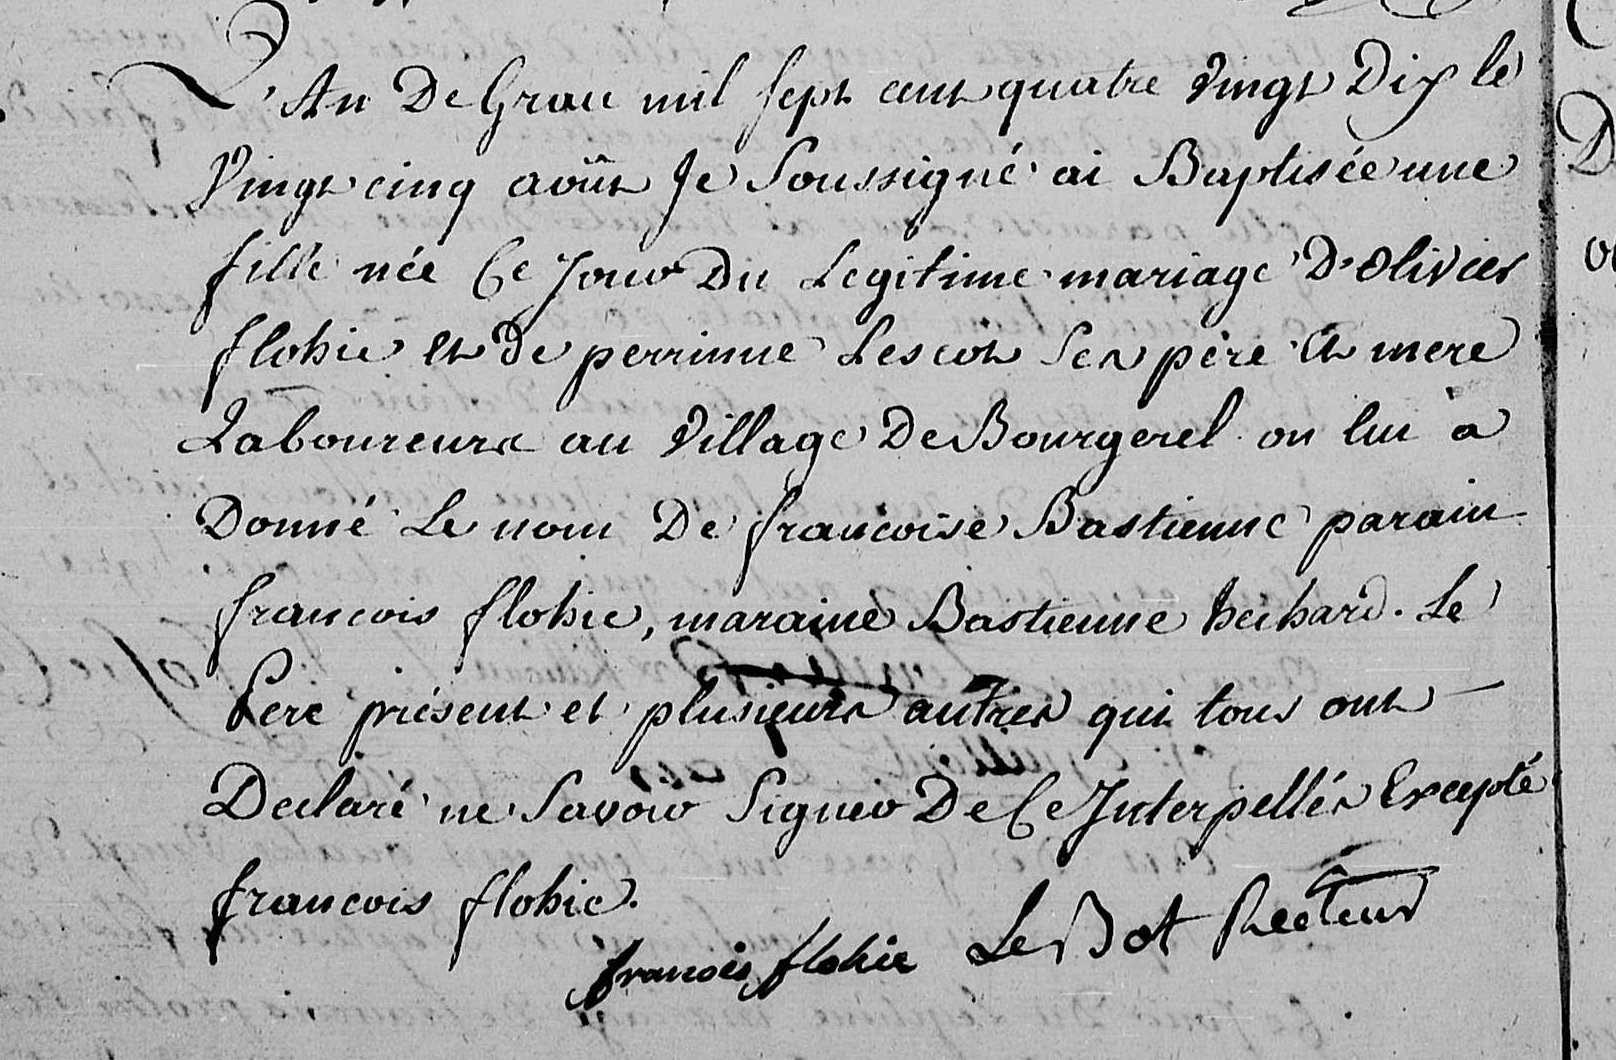 L'An De Grace mil sept cent quatre vingt Dix le
vingt cinq août Je Soussigné ai Baptisée une
fille née Ce Jour Du Legitime mariage D'Olivier
flohic et de perrinne Lescot Ses père et mere
Laboureurs au village De Bourgerel on lui a
Donné Le nom De francoise Bastienne parain
francois flohic, maraine Bastienne hechard. Le
Pere présent et plusieurs autres qui tous ont
Declaré ne Savoir Signer De Ce Interpellés Excepté
francois flohic.
francois flohic Le Bot Recteur